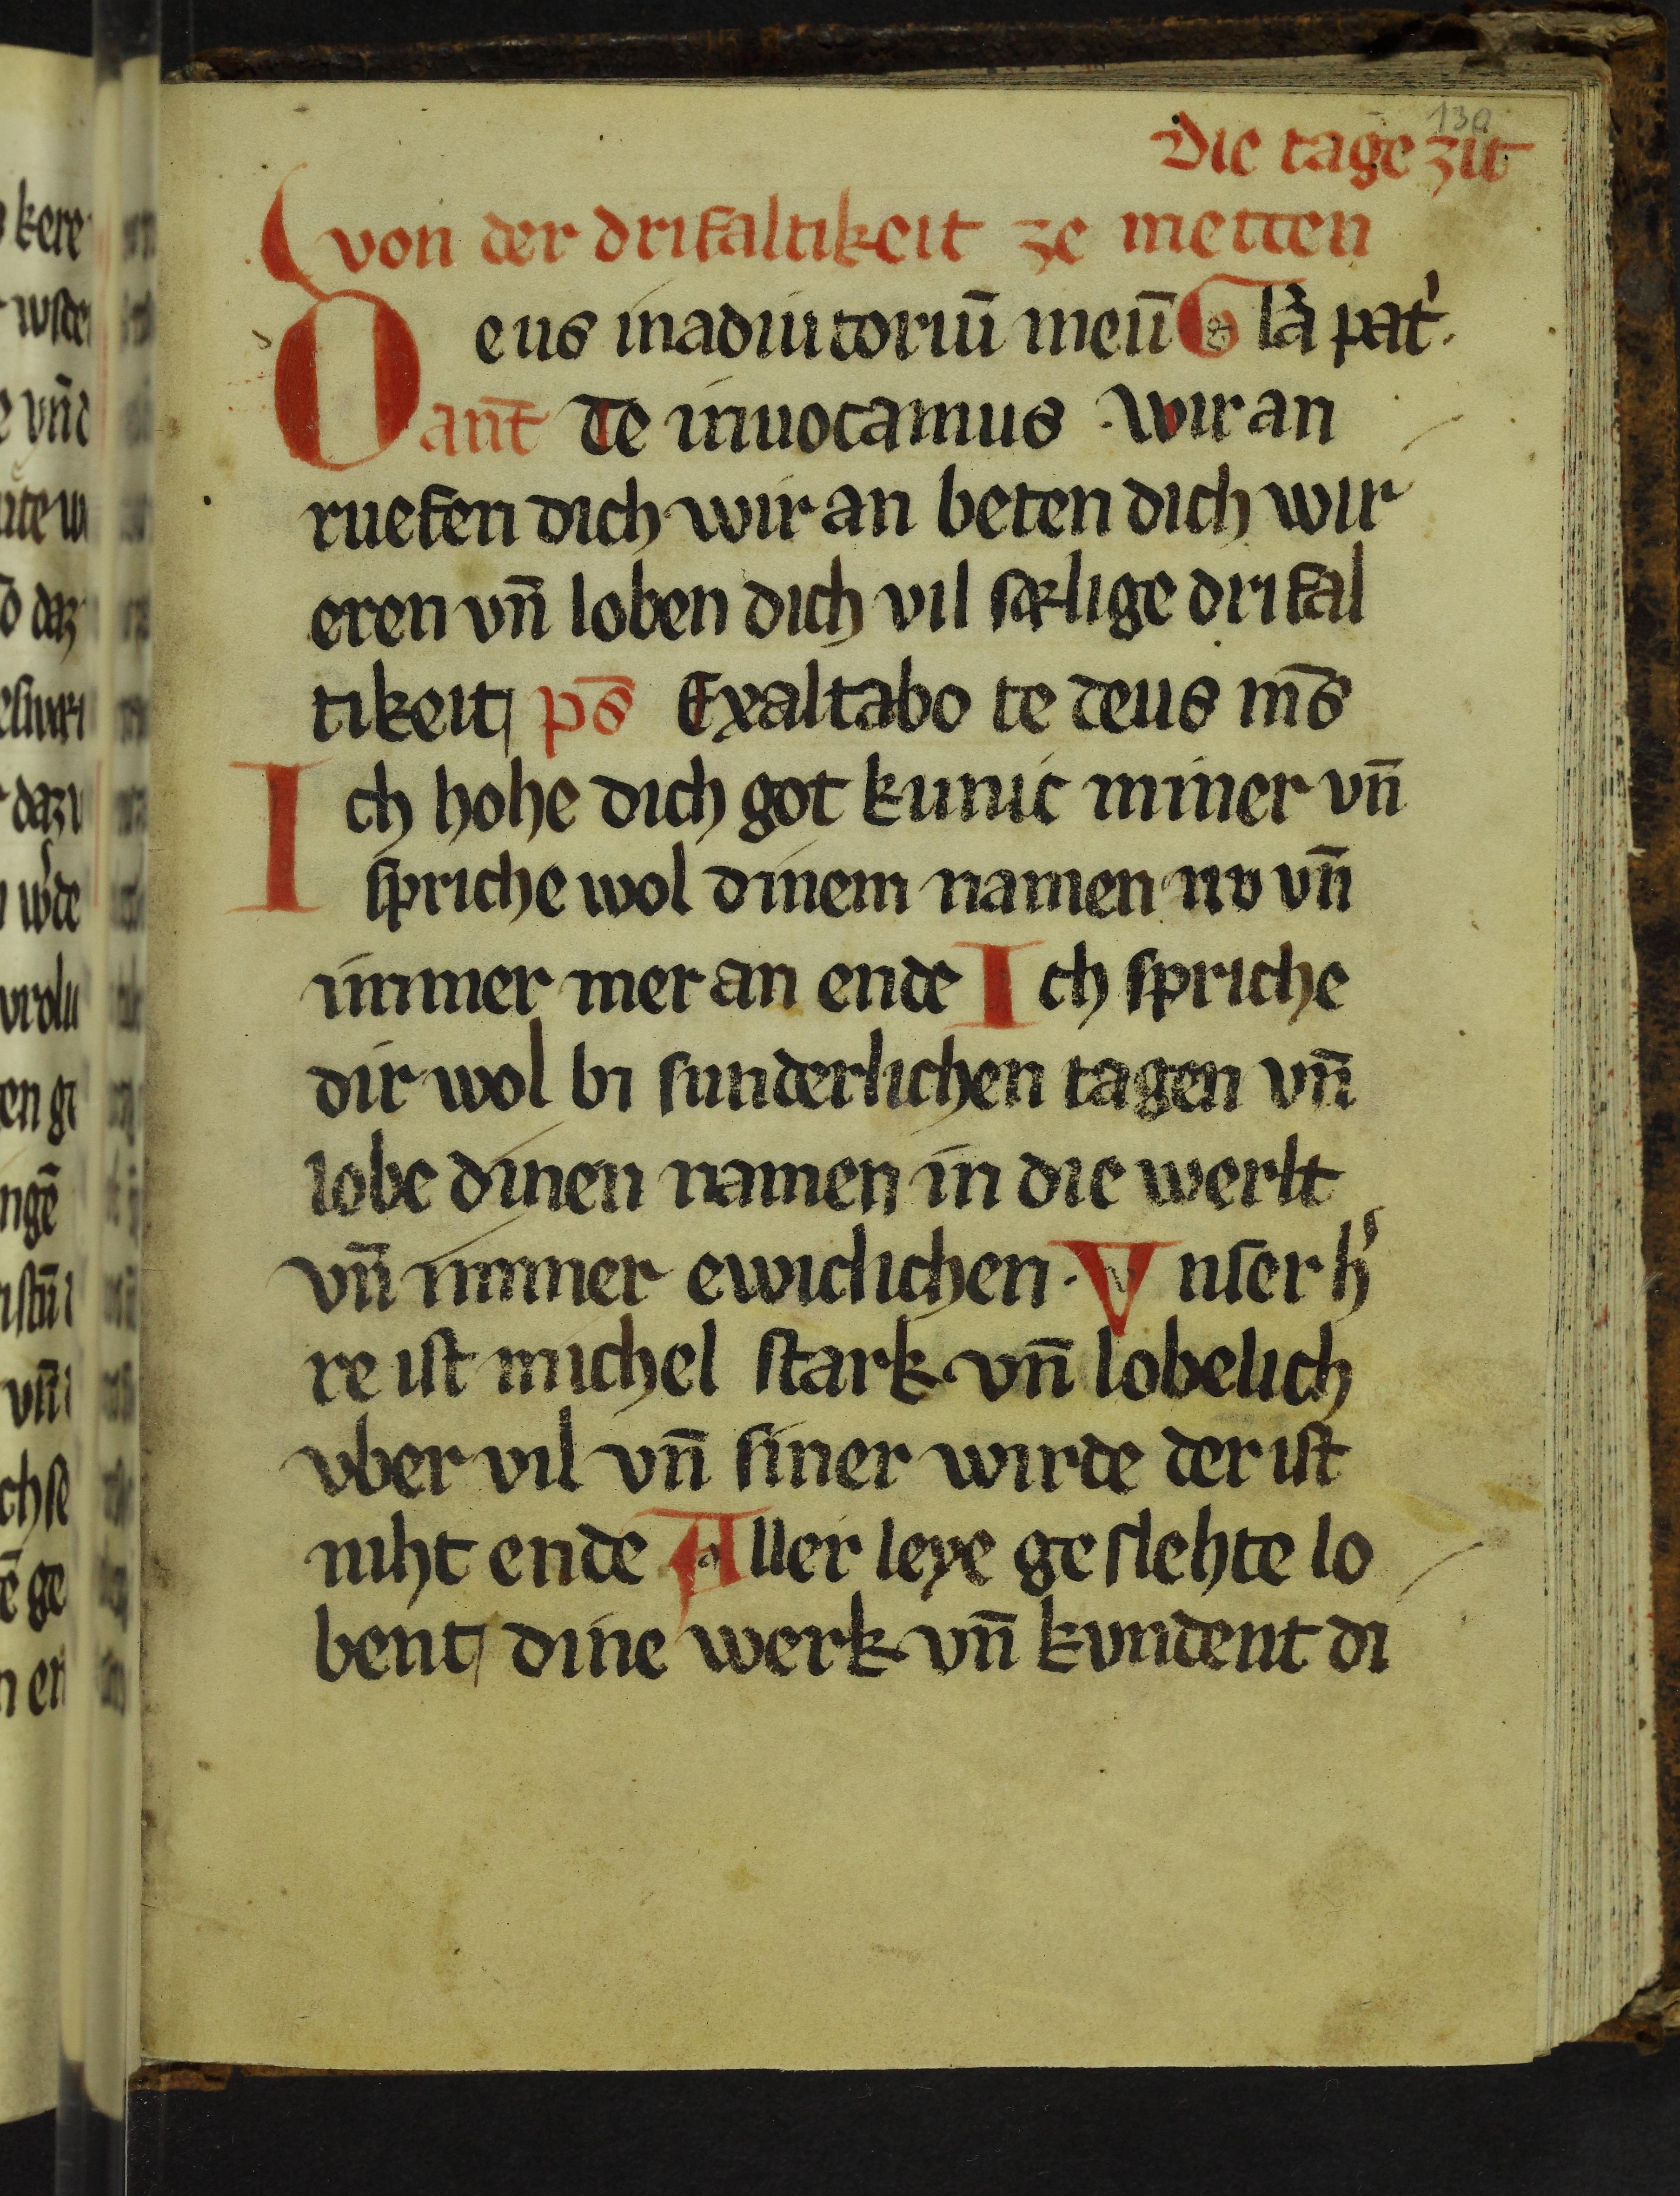 130
Die tage zit
von der drifaltikeit ze metten
Deus inadiutoriū meū Gla̍ pat̍.
ant̄ Te inuocamus. Wir an
ruefen dich wir an beten dich wir
eren vn̄ loben dich vil sælige drifal
tikeit ps̄ Exaltabo te deus ms̄
Ich hohe dich got kunic miner vn̄
spriche wol dinem namen nv vn̄
immer mer an ende Ich spriche
dir wol bi sunderlichen tagen vn̄
lobe dinen namen in die werlt
vn̄ immer ewiclichen. Vnser h̍
re ist michel stark vn̄ lobelich
vber vil vn̄ siner wirde der ist
niht ende Aller leye geslehte lo
bent dine werk vn̄ kvndent di